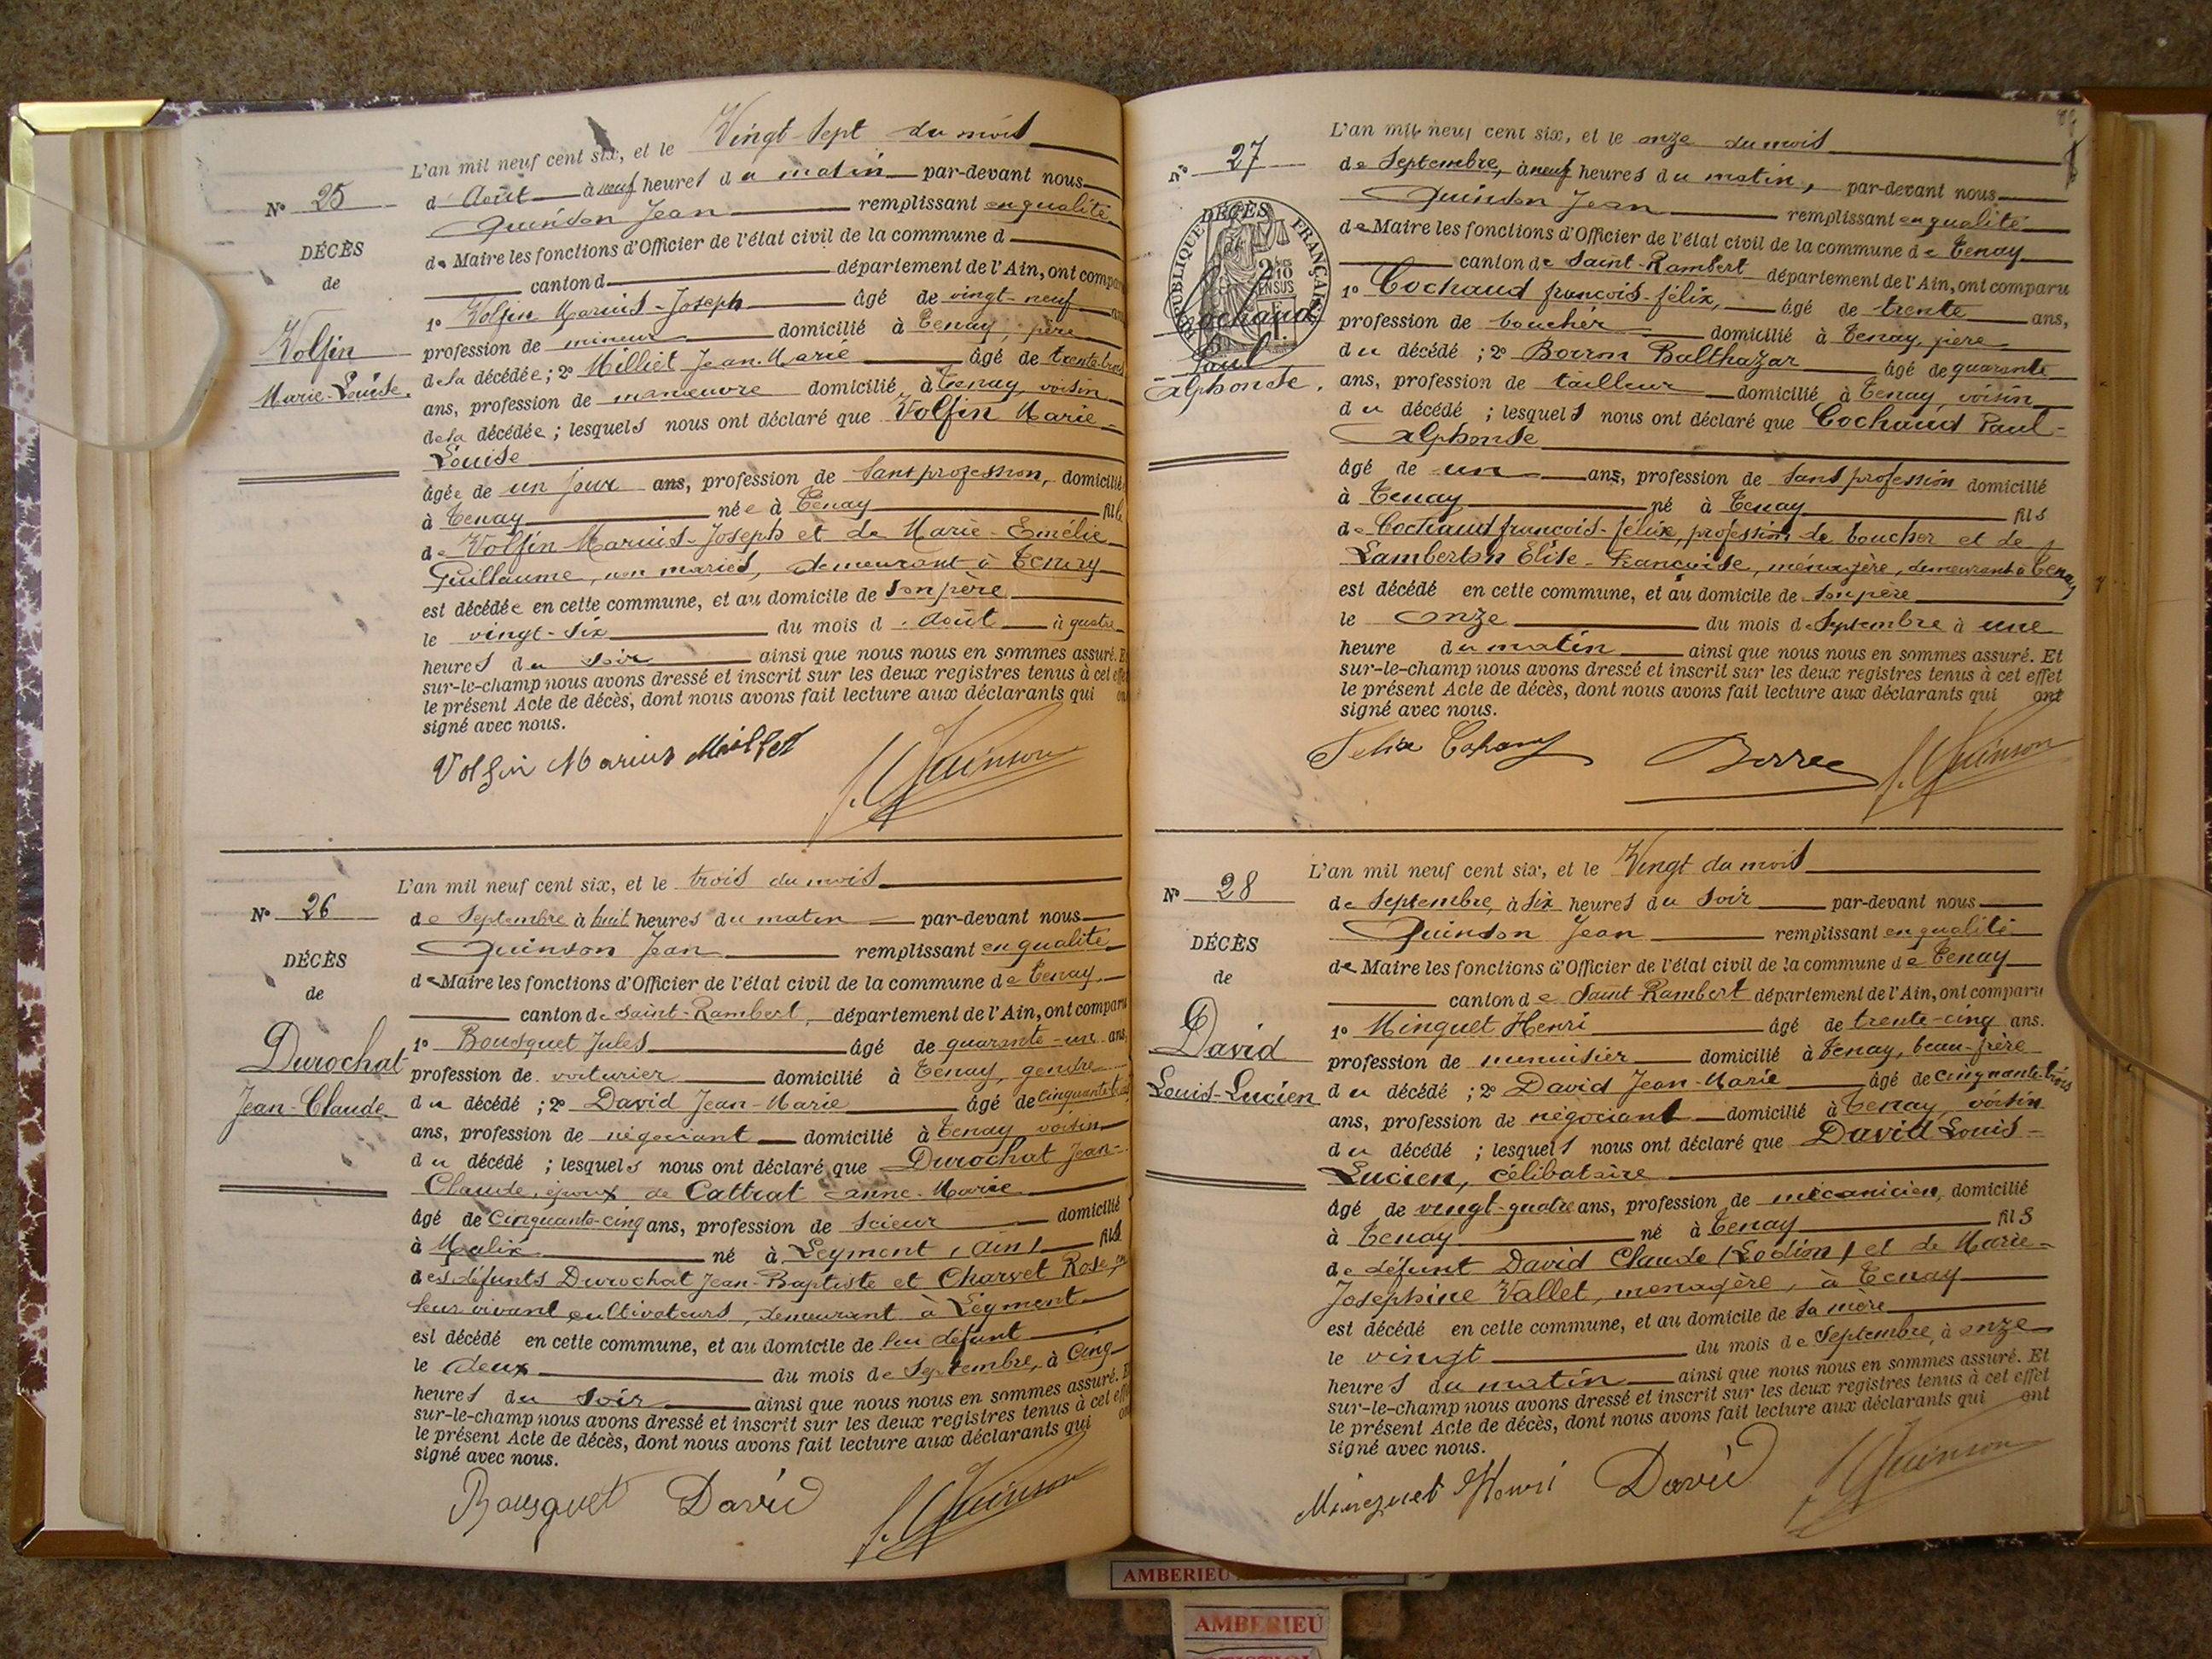 L'an mil neuf cent six, et le Vingt-Sept du mois
Nº 25
d'Août à neuf heures du matin par-devant nous
Quinson Jean remplissant en qualité
de Maire les fonctions d'Officier de l'état civil de la commune d
canton d département de l'Ain, ont comparu
DÉCÈS
de
Volfin
Marie-Louise.
1º Volfin Marius-Joseph âgé de vingt-neuf ans
profession de mineur domicilié à Tenay, père
de la décédée; 2º Milliet Jean-Marie âgé de trente-trois
ans, profession de manœuvre domicilié à Tenay, voisin
de la décédée; lesquels nous ont déclaré que Volfin Marie-
Louise
âgée de un jour ans, profession de Sans profession, domicilié
à Tenay née à Tenay fille
de Volfin Marius-Joseph et de Marie-Emélie
Guillaume, non mariés, demeurant à Tenay
est décédée en cette commune, et au domicile de son père
le vingt-six du mois d'Août à quatre
heures du soir ainsi que nous nous en sommes assuré. Et
sur-le-champ nous avons dressé et inscrit sur les deux registres tenus à cet effet
le présent Acte de décès, dont nous avons fait lecture aux déclarants qui ont
signé avec nous.
Volfin Marius Milliet J. Quinson
L'an mil neuf cent six, et le trois du mois
Nº 26
de Septembre à huit heures du matin par-devant nous
Quinson Jean remplissant en qualité
de Maire les fonctions d'Officier de l'état civil de la commune de Tenay
canton de Saint-Rambert, département de l'Ain, ont comparu
DÉCÈS
de
Durochat
Jean-Claude
1º Bousquet Jules âgé de quarante-un ans,
profession de voiturier domicilié à Tenay, gendre
du décédé; 2º David Jean-Marie âgé de cinquante-trois
ans, profession de négociant domicilié à Tenay voisin
du décédé; lesquels nous ont déclaré que Durochat Jean-
Claude, époux de Cattrat Anne-Marie
âgé de Cinquante-cinq ans, profession de Scieur domicilié
à Malix né à Leyment (Ain) fils
des défunts Durochat Jean-Baptiste et Charvet Rose, en
leur vivant cultivateurs, demeurant à Leyment
est décédé en cette commune, et au domicile de lui défunt
le deux du mois de Septembre, à Cinq
heures du soir ainsi que nous nous en sommes assuré. Et
sur-le-champ nous avons dressé et inscrit sur les deux registres tenus à cet effet
le présent Acte de décès, dont nous avons fait lecture aux déclarants qui ont
signé avec nous.
Bousquet David J. Quinson
L'an mil neuf cent six, et le onze du mois
Nº 27
de Septembre, à neuf heures du matin, par-devant nous
Quinson Jean remplissant en qualité
de Maire les fonctions d'Officier de l'état civil de la commune de Tenay
canton de Saint-Rambert département de l'Ain, ont comparu
DÉCÈS
de
RÉPUBLIQUE FRANÇAISE
2/10 EN SUS
Cochaud
Paul
Alphonse.
1º Cochaud François-Félix, âgé de trente ans,
profession de boucher domicilié à Tenay, père
du décédé; 2º Borron Balthazar âgé de quarante
ans, profession de tailleur domicilié à Tenay, voisin
du décédé; lesquels nous ont déclaré que Cochaud Paul-
Alphonse
âgé de un ans, profession de Sans profession domicilié
à Tenay né à Tenay fils
de Cochaud François-Félix, profession de boucher et de
Lamberton Elise-Françoise, ménagère, demeurant à Tenay
est décédé en cette commune, et au domicile de son père
le onze du mois de Septembre à une
heure du matin ainsi que nous nous en sommes assuré. Et
sur-le-champ nous avons dressé et inscrit sur les deux registres tenus à cet effet
le présent Acte de décès, dont nous avons fait lecture aux déclarants qui ont
signé avec nous.
Felix J. Quinson
L'an mil neuf cent six, et le Vingt du mois
Nº 28
de Septembre, à six heures du soir par-devant nous
Quinson Jean remplissant en qualité
de Maire les fonctions d'Officier de l'état civil de la commune de Tenay
canton de Saint-Rambert département de l'Ain, ont comparu
DÉCÈS
de
David
Louis-Lucien
1º Minguet Henri âgé de trente-cinq ans.
profession de menuisier domicilié à Tenay, beau-frère
du décédé; 2º David Jean-Marie âgé de cinquante-trois
ans, profession de négociant domicilié à Tenay, voisin
du décédé; lesquels nous ont déclaré que David Louis-
Lucien, célibataire
âgé de vingt-quatre ans, profession de mécanicien, domicilié
à Tenay né à Tenay fils
de défunt David Claude (Lodion) et de Marie-
Josephine Vallet, menagère, à Tenay
est décédé en cette commune, et au domicile de sa mère
le vingt du mois de Septembre, à onze
heures du matin ainsi que nous nous en sommes assuré. Et
sur-le-champ nous avons dressé et inscrit sur les deux registres tenus à cet effet
le présent Acte de décès, dont nous avons fait lecture aux déclarants qui ont
signé avec nous.
Minguet Henri David J. Quinson
AMBERIEU
AMBERIEU